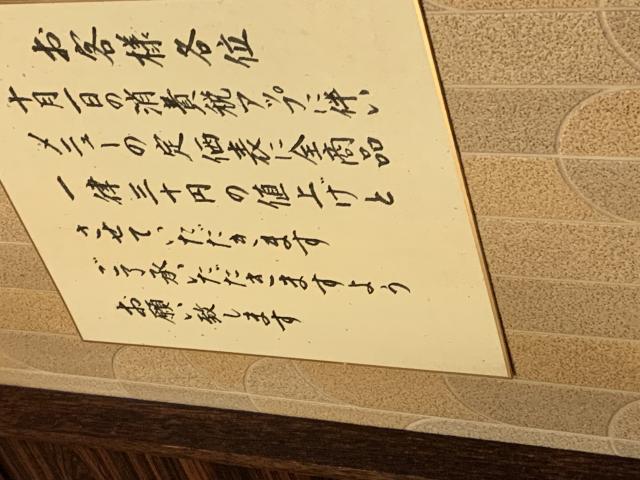 お客様各位
十月一日の消費税アップに伴い
メニューの定価表に全商品
一律三十円の値上げと
させて、いただきます
ご了承、いただきますよう
お願い致します